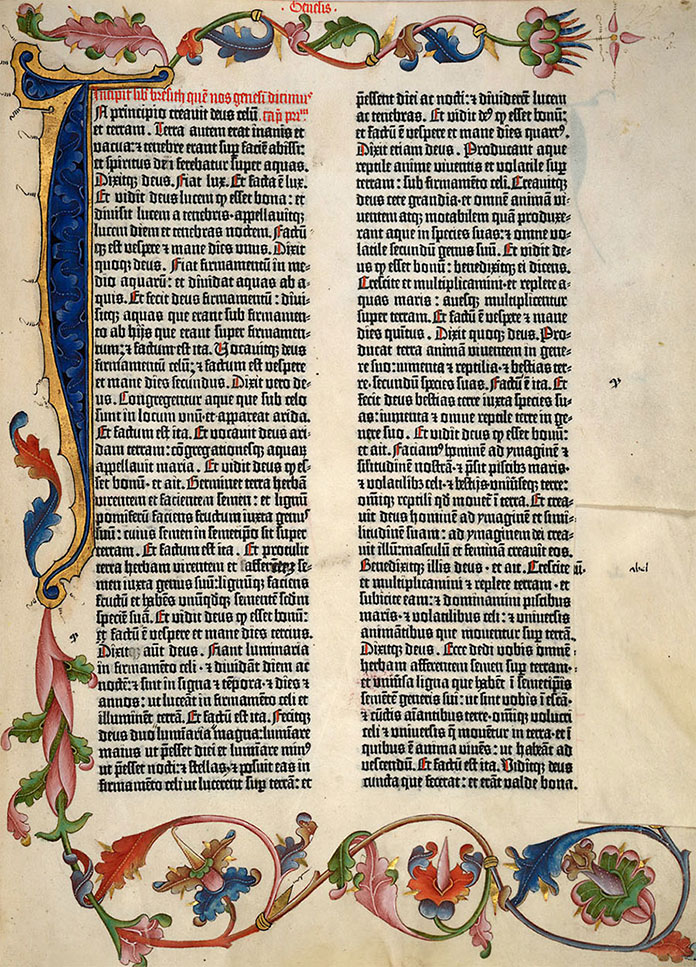 Genesis
Incipit liber bresith quē nos genesim dicim⁹
In principio creavit deus celū ca. prim.
et terram. Terra autem erat inanis et
vacua: ⁊ tenebre erant sup faciē abissi:
et spiritus dñi ferebatur super aquas.
Dixitq; deus. Fiat lux. Et facta ē lux.
Et vidit deus lucem ꝙ esset bona: et
divisit lucem a tenebris· appellavitq;
lucem diem et tenebras noctem. Factū-
q; est vespere ⁊ mane dies vnus. Dixit
quoq; deus. Fiat firmamentū in me-
dio aquarū: et dividat aquas ab a-
quis. Et fecit deus firmamentū: divi-
sitq; aquas que erant sub firmamen-
to ab hijs que erant super firmamen-
tum: ⁊ factum est ita. Vocavitq; deus
firmamentū celū: ⁊ factum est vespere
et mane dies secundus. Dixit vero de-
us. Congregentur aque que sub celo
sunt in locum vnū· et appareat arida.
Et factum est ita. Et vocavit deus ari-
dam terram: cōgregationesq; aquarū
appellavit maria. Et vidit deus ꝙ es-
set bonū· et ait. Germinet terra herbā
virentem et facientem semen: et lignū
pomiferū faciens fructum iuxta genus
suū: cuius semen in semetipso sit super
terram. Et factum est ita. Et protulit
terra herbam virentem et afferentē se-
men iuxta genus suū: lignūq; faciens
fructū et habēs vnūqdq; sementē scdm
speciē suā. Et vidit deus ꝙ esset bonū:
et factū ē vespere et mane dies tercius.
Dixitq; aūt deus. Fiant luminaria
in firmamēto celi· ⁊ dividāt diem ac
noctē: ⁊ sint in signa ⁊ tēpora· ⁊ dies ⁊
annos: ut luceāt in firmamēto celi et
illuminēt terrā. Et factū est ita. Fecitq;
deus duo lumīaria magna: lumīare
maius ut p̄esset diei et lumīare min⁹
ut p̄esset nocti: ⁊ stellas· ⁊ posuit eas in
firmamēto celi ut lucerent sup terrā: et
p̄essent diei ac nocti: ⁊ dividerēt lucem
ac tenebras. Et vidit de⁹ ꝙ esset bonū:
et factū ē vespere et mane dies quart⁹.
Dixit etiam deus. Producant aque
reptile anime viventis et volatile sup
terram: sub firmamēto celi. Creavitq;
deus cete grandia· et omnē animā vi-
ventem atq; motabilem quā produxe-
rant aque in species suas: ⁊ omne vo-
latile secundū genus suū. Et vidit de-
us ꝙ esset bonū: benedixitq; ei dicens.
Crescite et multiplicamini· et replete a-
quas maris: avesq; multiplicentur
super terram. Et factū ē vespere ⁊ mane
dies quītus. Dixit quoq; deus. Pro-
ducat terra animā viventem in gene-
re suo: iumenta ⁊ reptilia· ⁊ bestias ter-
re· secundū species suas. Factū ē ita. Et
fecit deus bestias terre iuxta species su-
as: iumenta ⁊ omne reptile terre in ge-
nere suo. Et vidit deus ꝙ esset bonū:
et ait. Faciam⁹ hominē ad ymaginē ⁊
silitudinē nostrā· ⁊ p̄sit piscib⁹ maris·
⁊ volatilib⁹ celi· ⁊ bestijs vniūseq; terre:
omīq; reptili qd movet̄ i terra. Et crea-
vit deus hominē ad ymaginē et simi-
litudinē suam: ad ymaginem dei crea-
vit illū: masculū et feminā creavit eos.
Benedixitq; illis deus· et ait. Crescite
et multiplicamini ⁊ replete terram· et
subicite eam: ⁊ dominamini piscibus
maris· ⁊ volatilibus celi: ⁊ universis
animātibus que moventur sup terrā.
Dixitq; deus. Ecce dedi vobis omnē
herbam afferentem semen sup terram·
et vniūsa ligna que habēt ī semetipīs
semētem generis sui: ut sint vobis ī escā·
⁊ cūctis aīantibus terre· omīq; volucri
celi ⁊ universis q̄ moventur in terra· et ī
quibus ē anima vivēs: ut habeāt ad
vescendū. Et factū est ita. Viditq; deus
cuncta que fecerat: et erāt valde bona.